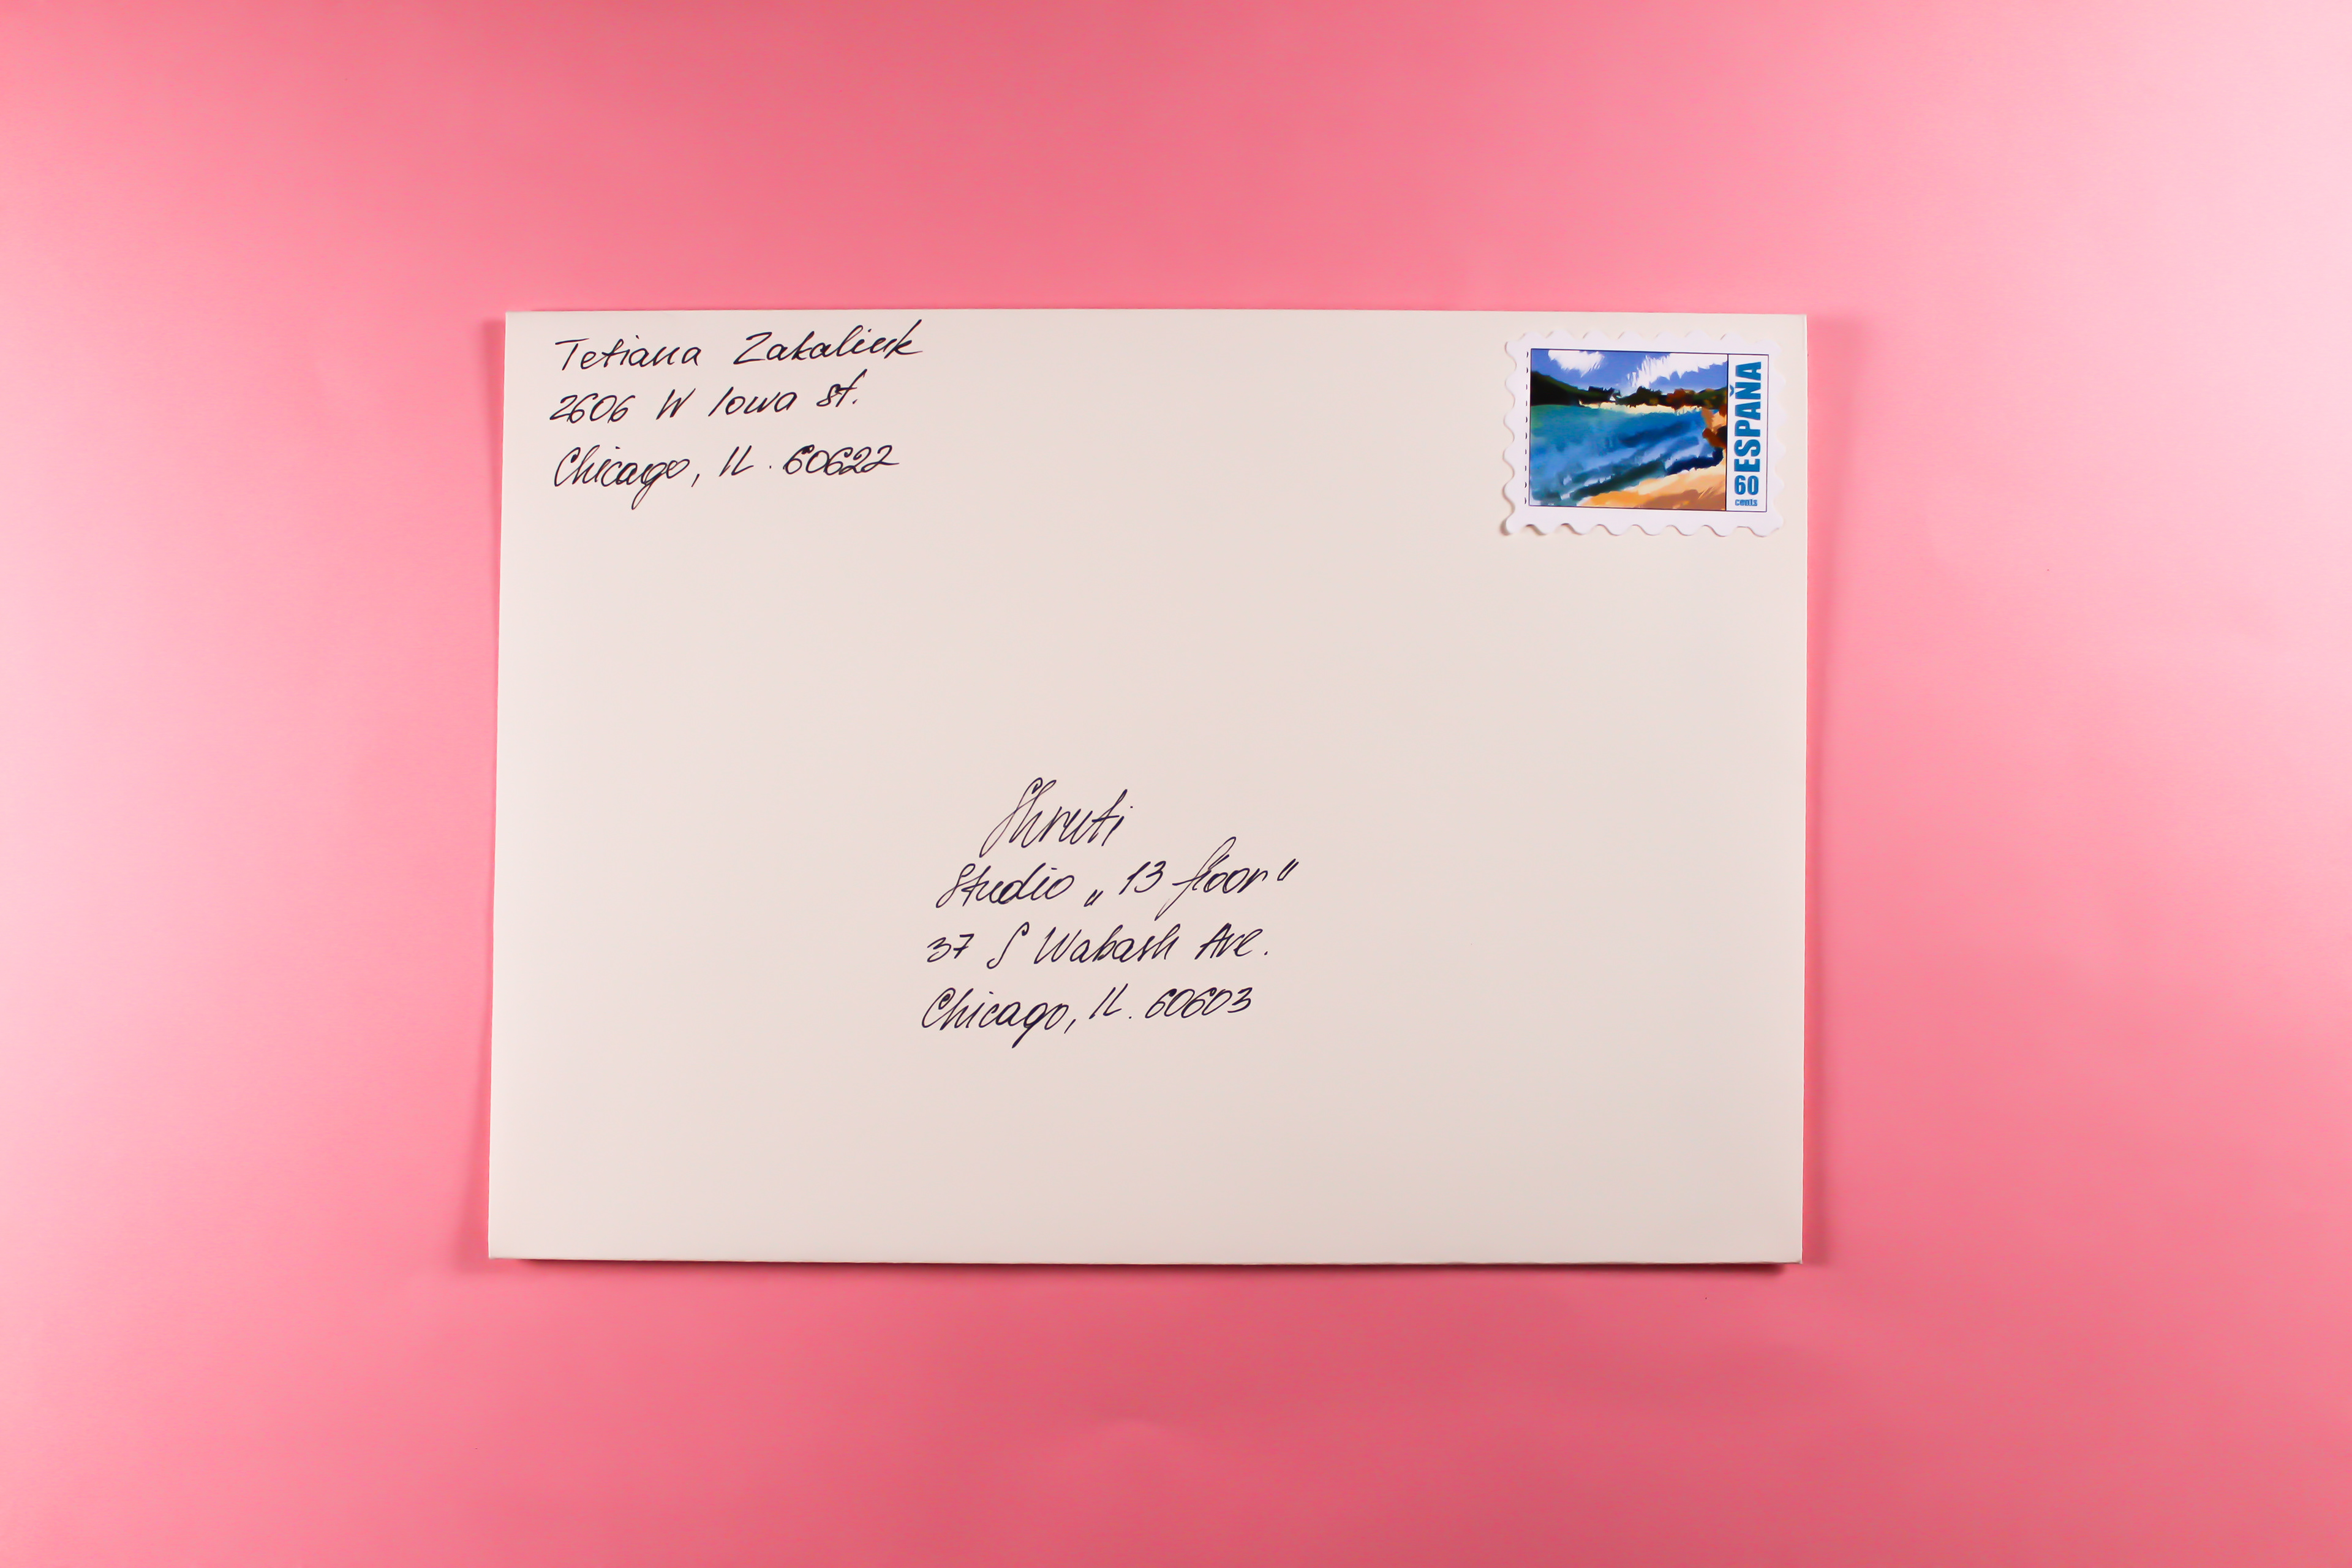 Tetiana Zakaliuk
2606 W Iowa st.
Chicago, IL. 60622
ESPAÑA
60
cents
Shruti
Studio „13 floor"
37 S Wabash Ave.
Chicago, IL. 60603